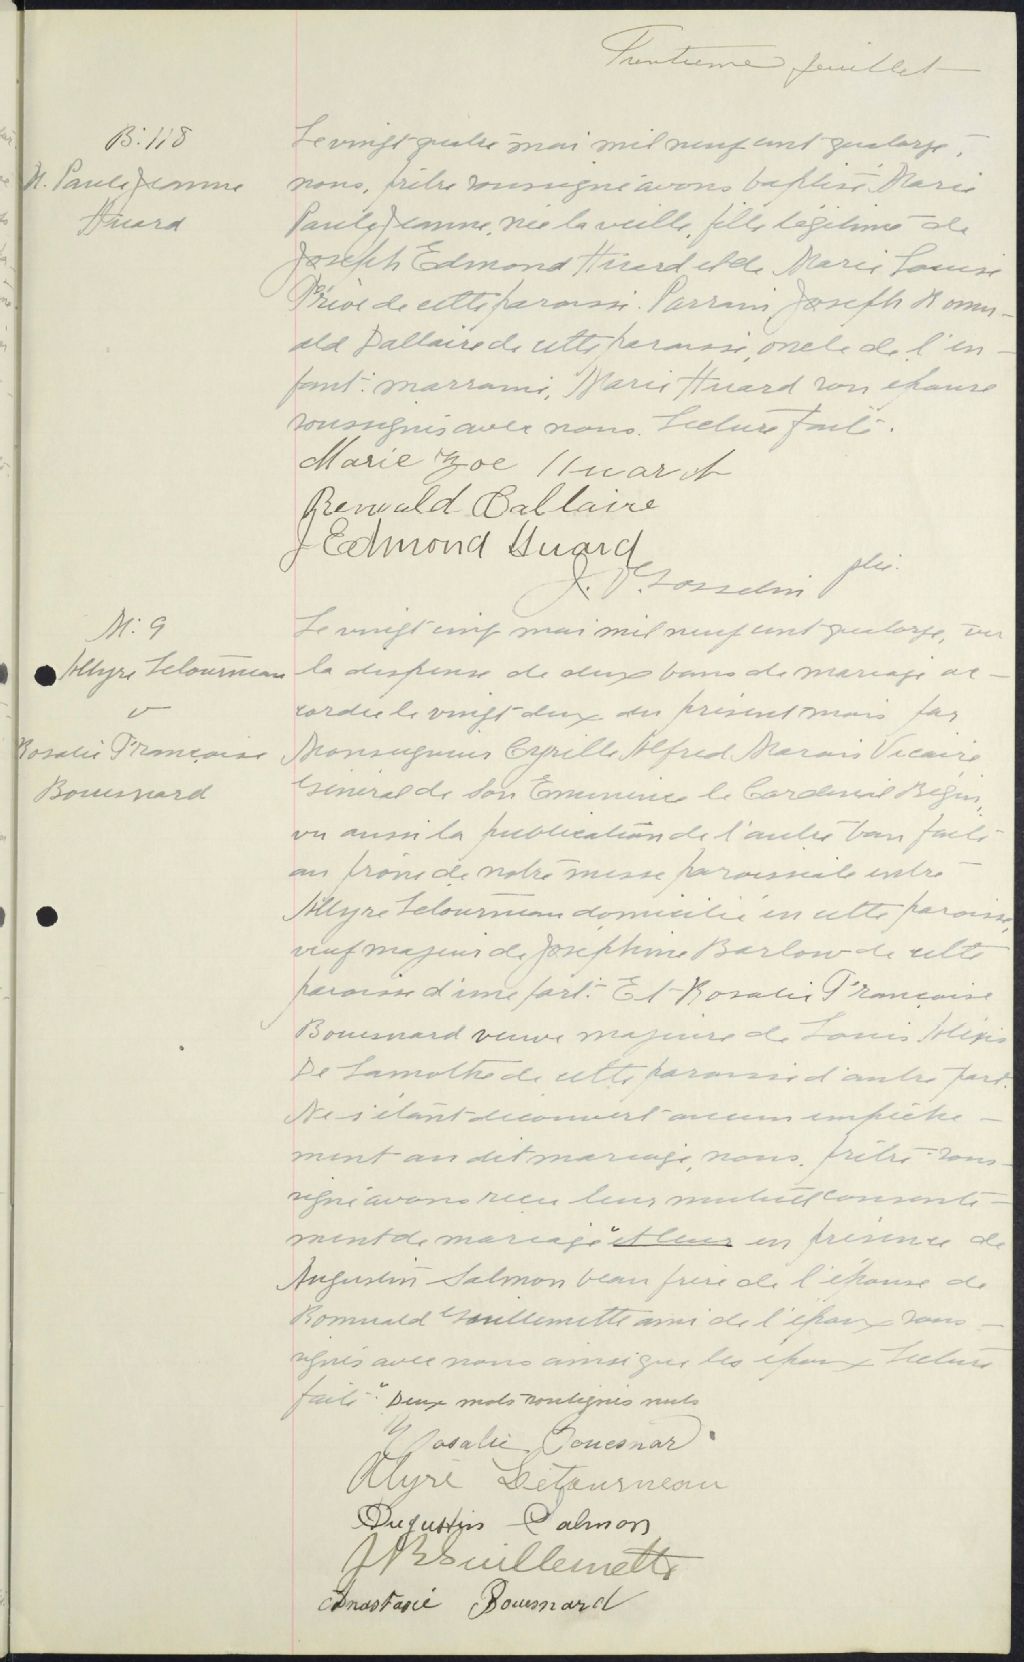 Trentième feuillet
B: 118
M. Paule Jeanne
Huard
Le vingt quatre mai mil neuf cent quatorze,
nous, prêtre soussigné avons baptisé Marie
Paule Jeanne, née la veille, fille légitime de
Joseph Edmond Huard et de Marie Louise
de cette paroisse. Parrain, Joseph Romu-
ald Dallaire de cette paroisse, oncle de l'en-
fant: marraine, Marie Huard son épouse
soussignés avec nous. Lecture faite.
Marie Zoe Huard
Romuald Dallaire
J Edmond Huard
J. Gosselin ptre.
M: 9
Alyre Letourneau
v
Rosalie Françoise
Bouesnard
Le vingt cinq mai mil neuf cent quatorze, vu
la dispense de deux bans de mariage ac-
cordée le vingt deux du présent mois par
Monseigneur Cyrille Alfred Marois Vicaire
Général de Son Eminence le Cardinal Bégin,
vu aussi la publication de l'autre ban faite
au prône de notre messe paroissiale entre
Allyre Letourneau domicilié en cette paroisse,
veuf majeur de Joséphine Barlow de cette
paroisse d'une part. Et Rosalie Françoise
Bouesnard veuve majeure de Louis Alexis
De Lamothe de cette paroisse d'autre part.
Ne s'étant découvert aucun empêche-
ment au dit mariage, nous, prêtre sous-
signé avons reçu leur mutuel consente-
ment de mariage et leur en présence de
Augustin Salmon beau frère de l'épouse de
Romuald Guillemette ami de l'époux sous-
signés avec nous ainsi que les époux Lecture
faite. Deux mots soulignés nuls
Rosalie Bouesnard
Alyre Létourneau
Augustin Salmon
J R Guillemette
Anastasie Bouesnard